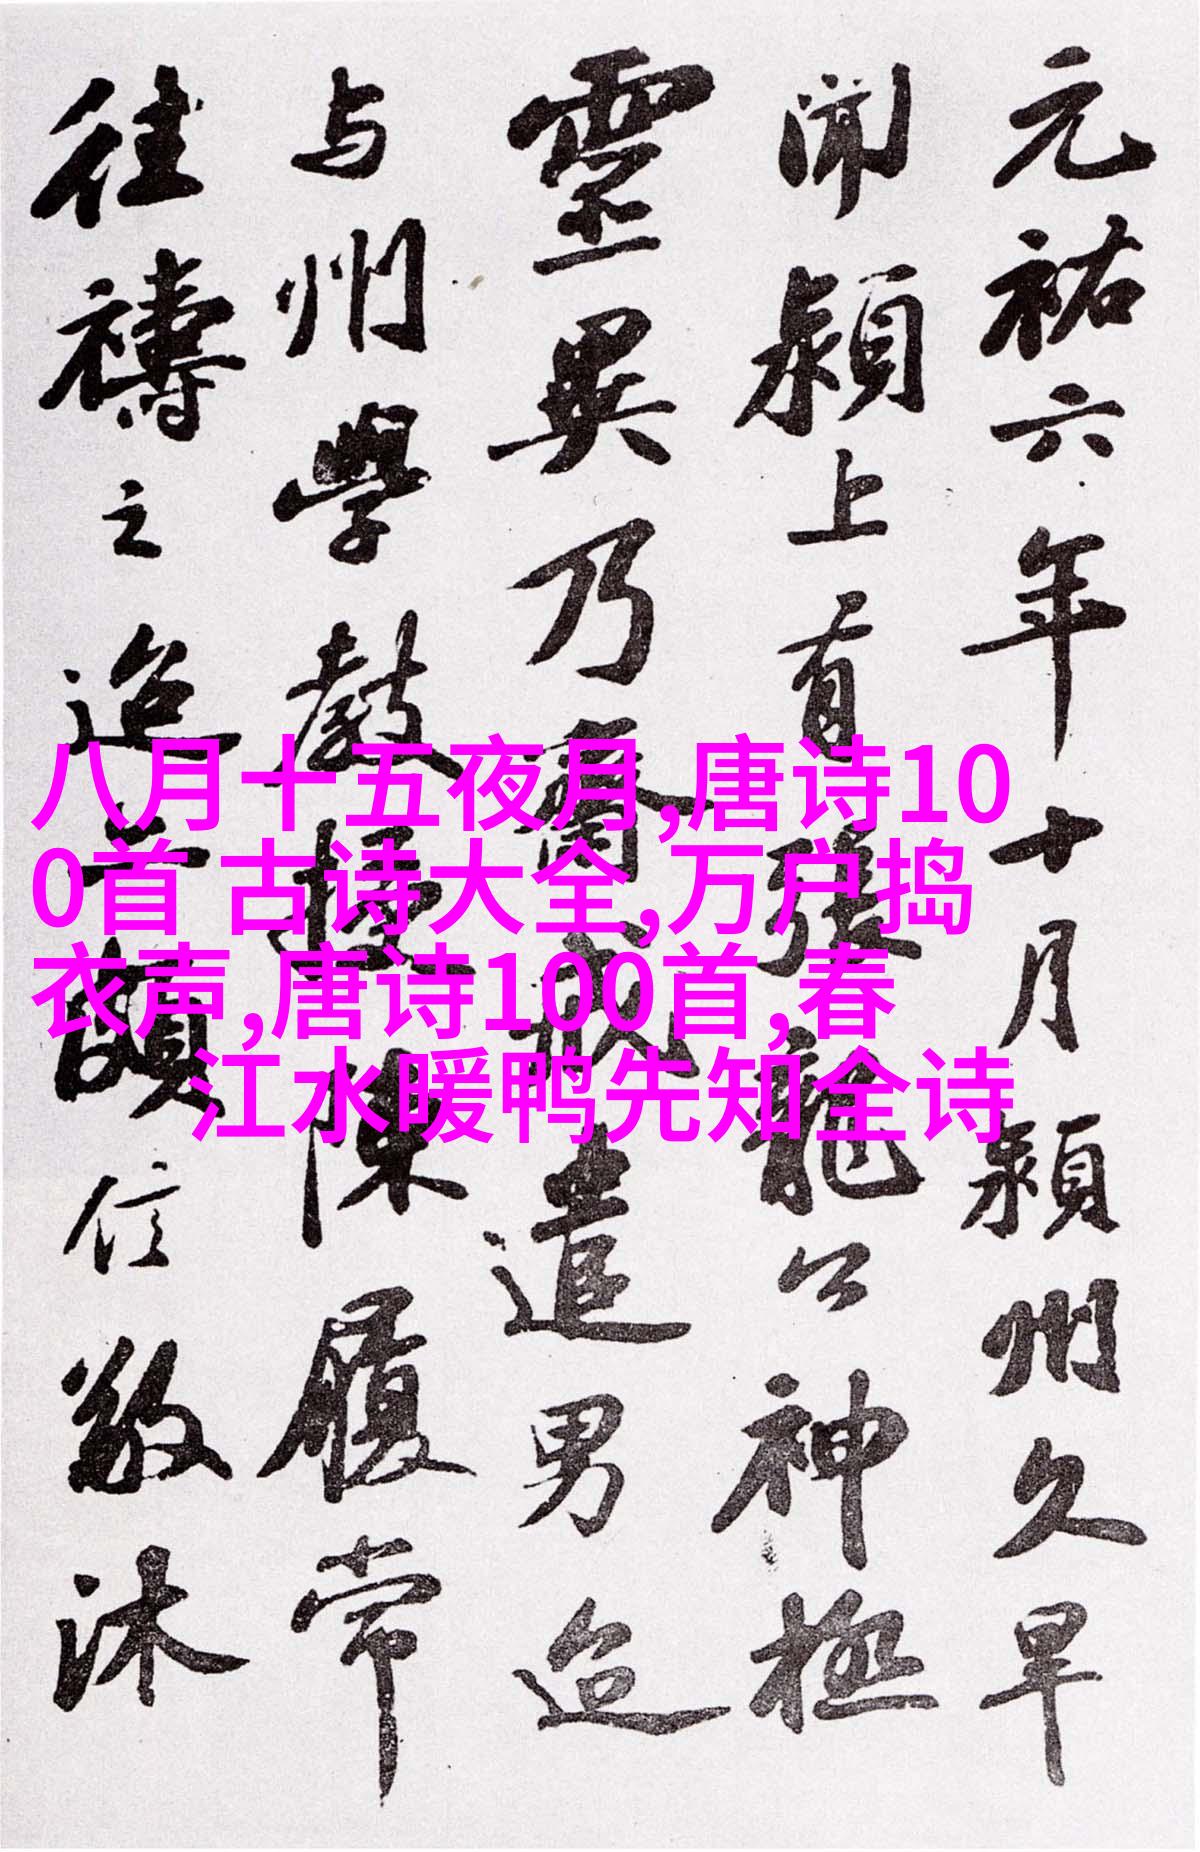 元祐六年十月潁州久旱
聞潁上有張龍公神極
靈異乃齋戒遣男迨
与州學教授陳履常
往禱之迨亦頗信敬沐
八月十五夜月,唐诗10
0首 古诗大全,万户捣
衣声,唐诗100首,春
江水暖鸭先知全诗